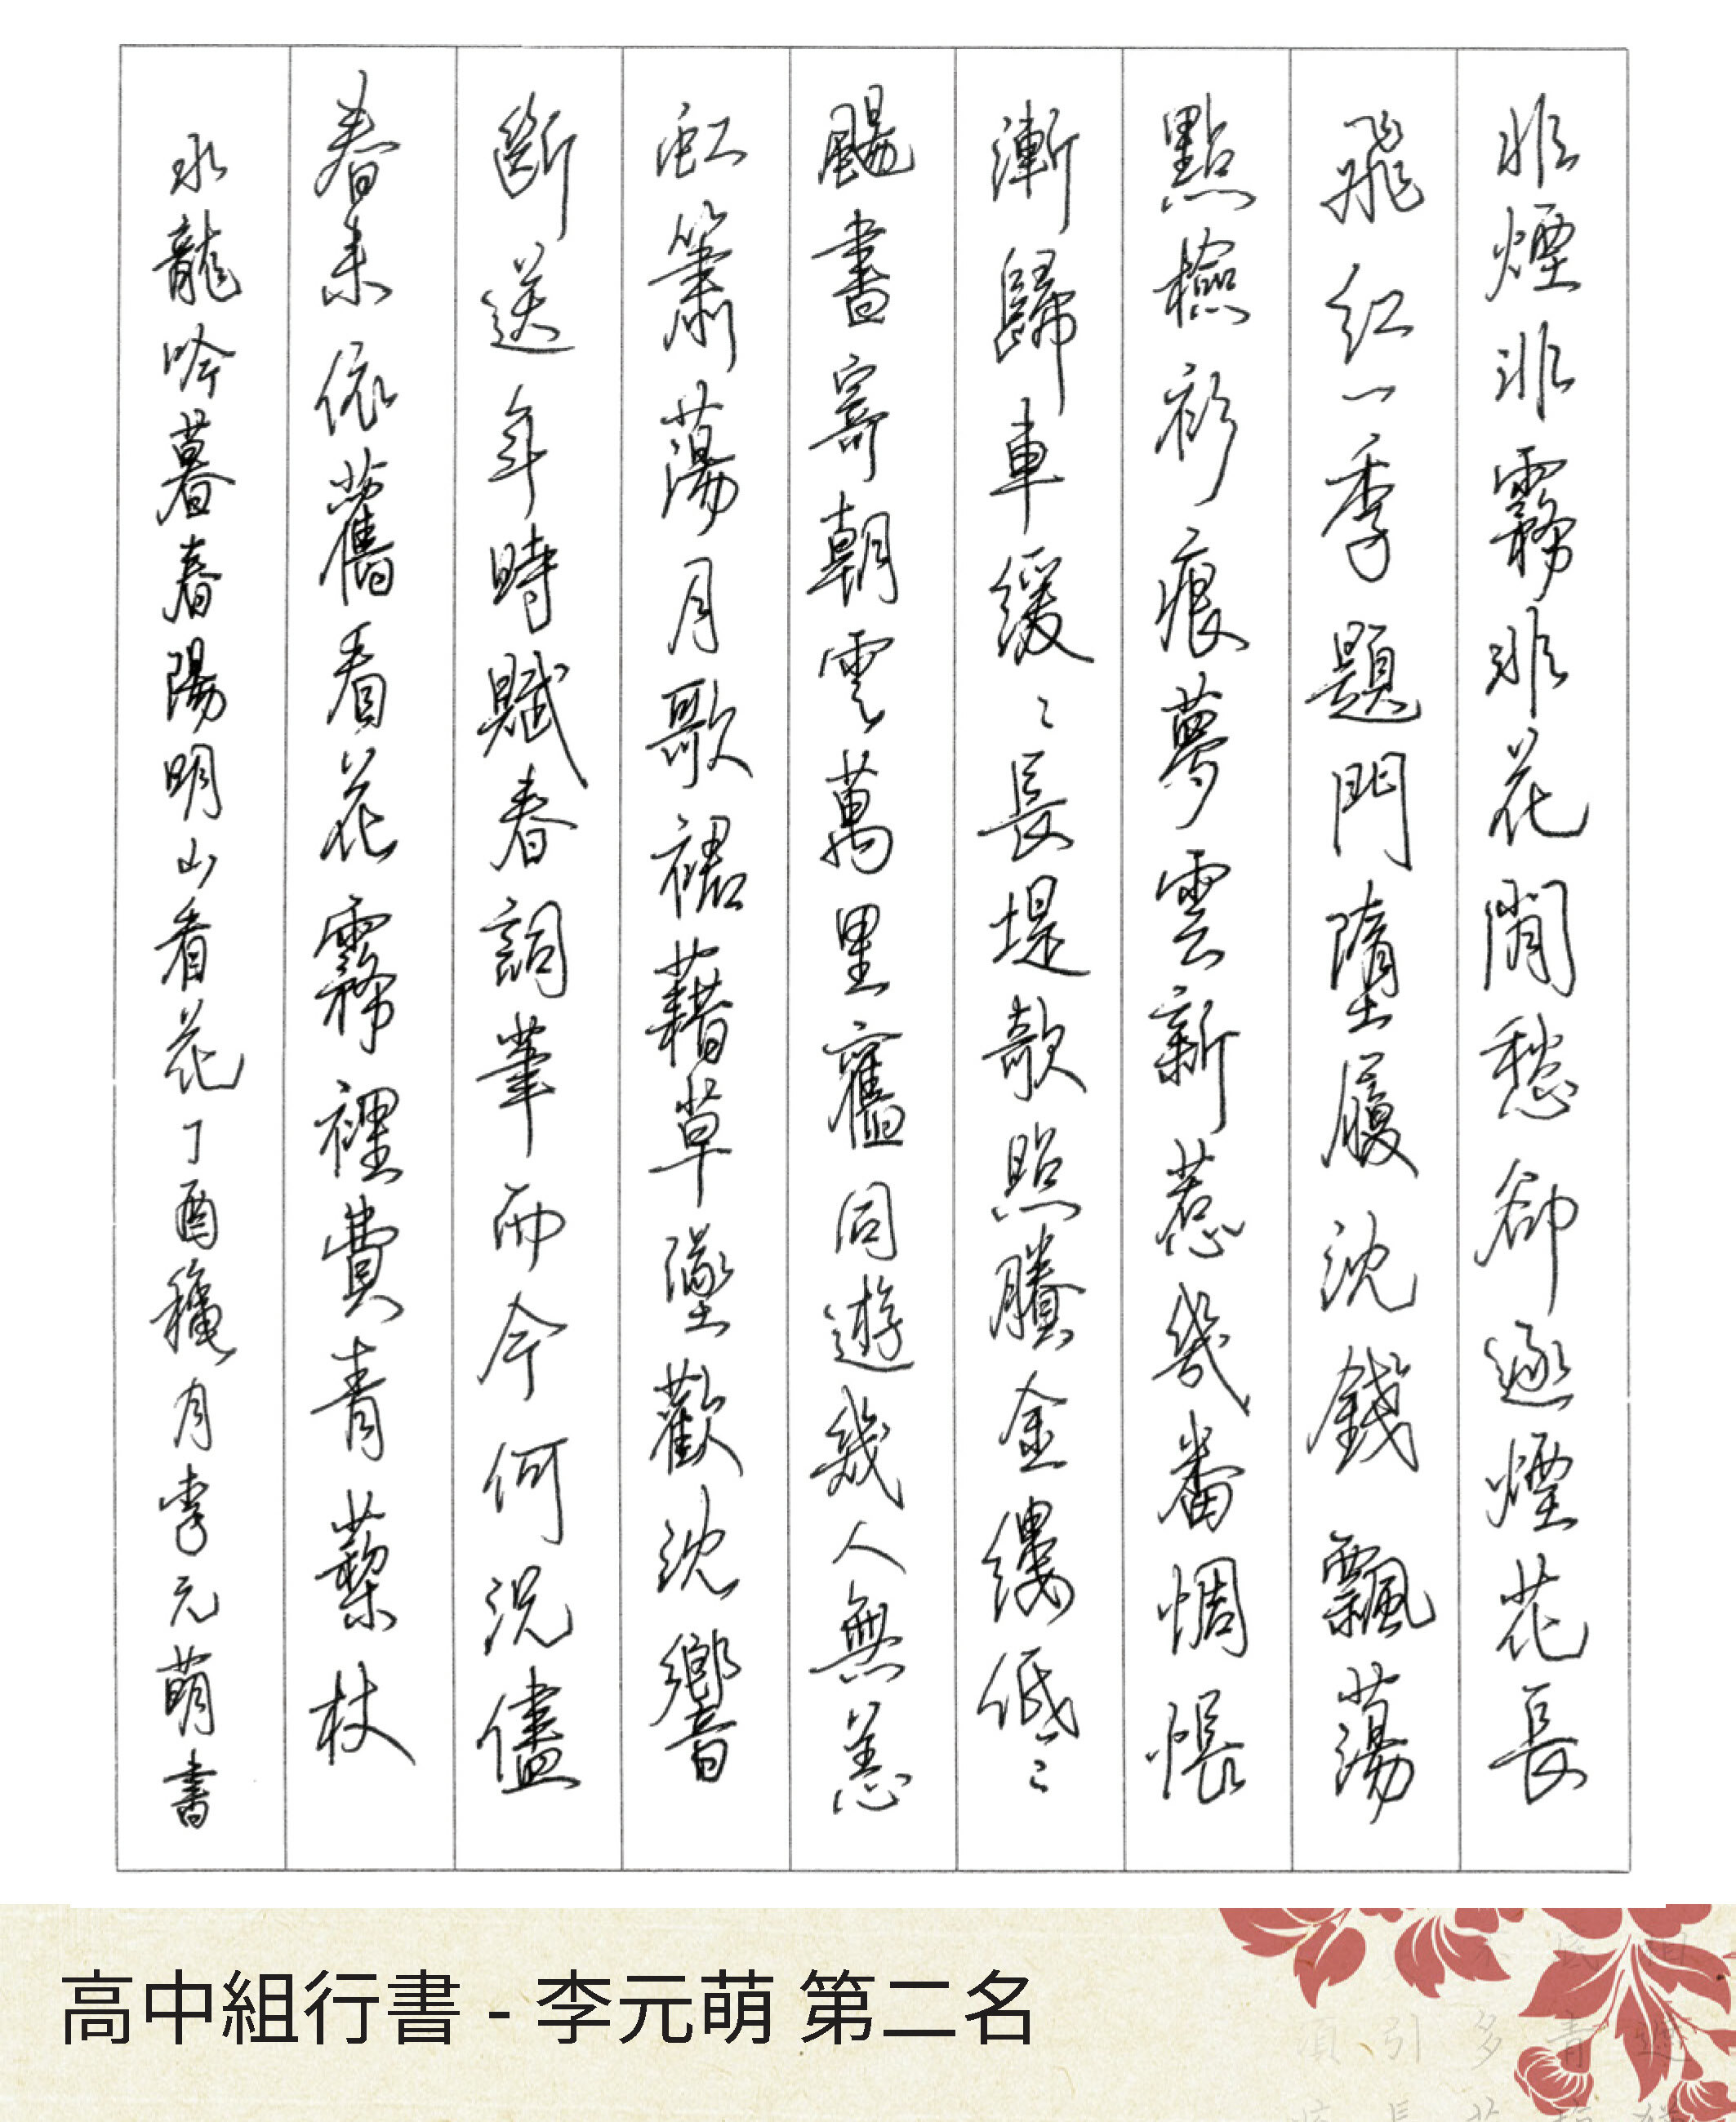 非煙非霧非花閒愁卻逐煙花長
飛紅一季題門墮履沈錢飄蕩
點檢衫痕夢雲新惹幾番惆悵
漸歸車緩〻長堤欹照賸金縷低〻
颺畫寄朝雲萬里舊同遊幾人無恙
虹簫蕩月歌裙藉草墜歡沈響
斷送年時賦春詞筆而今何況儘
春來依舊看花霧裡費青藜杖
水龍吟暮春陽明山看花丁酉龝月李元萌書
高中組行書 - 李元萌 第二名